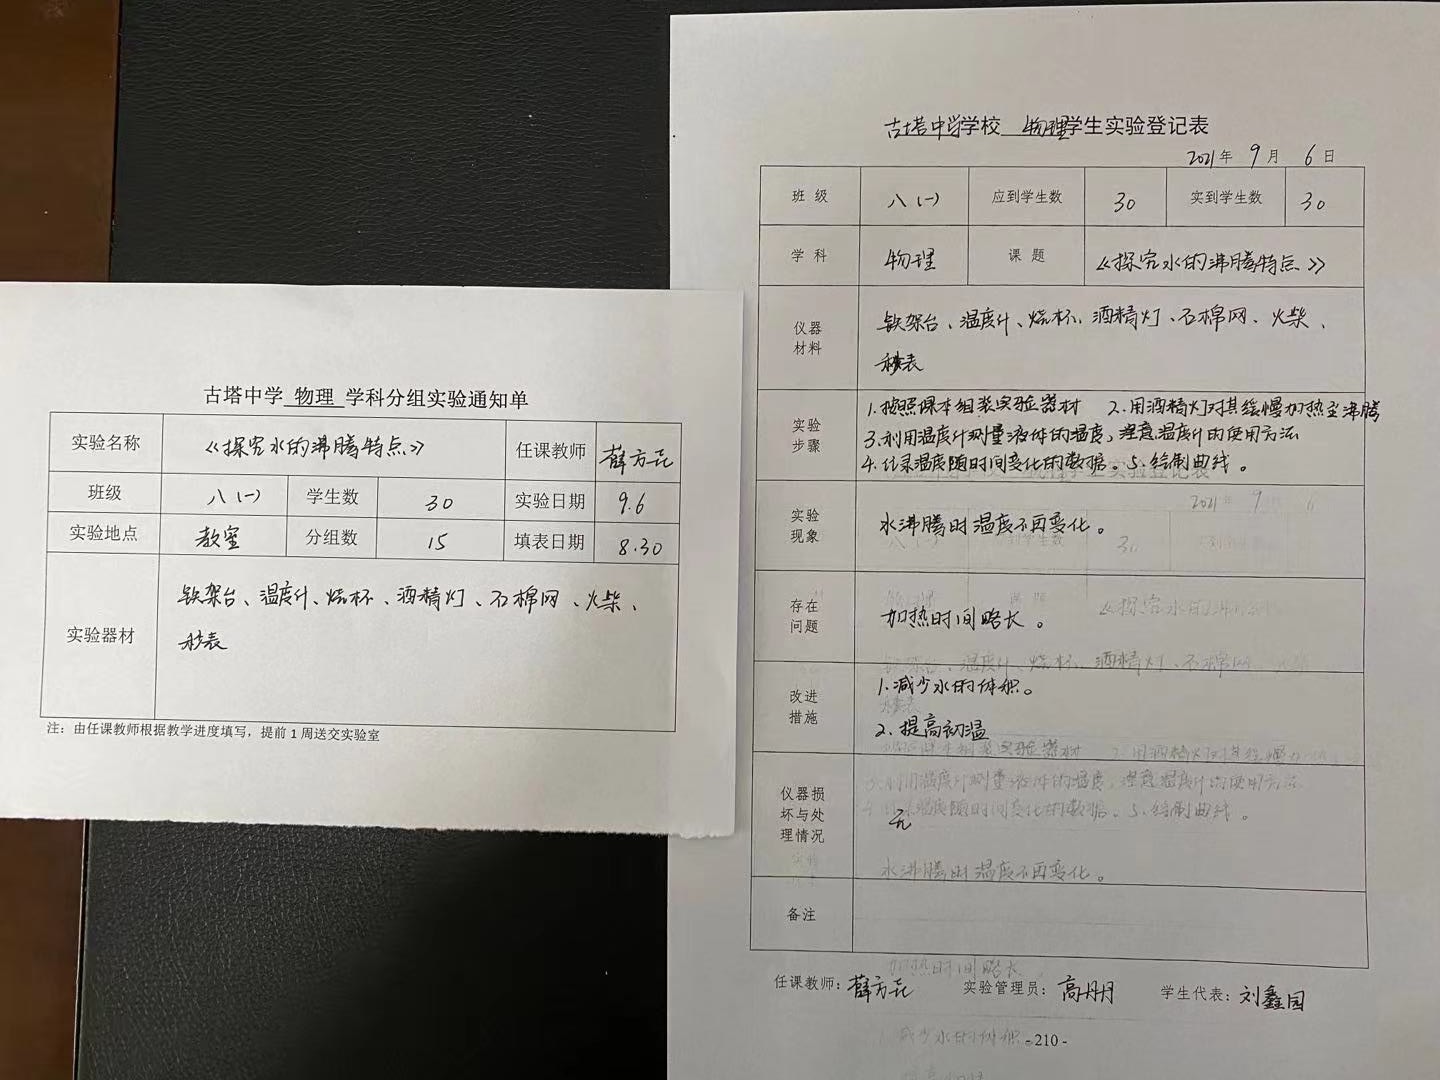 古塔中学 物理 学科分组实验通知单
实验名称 《探究水的沸腾特点》 任课教师 薛方元
班级 八(一) 学生数 30 实验日期 9.6
实验地点 教室 分组数 15 填表日期 8.30
实验器材
铁架台、温度计、烧杯、酒精灯、石棉网、火柴、
秒表
注：由任课教师根据教学进度填写，提前1周送交实验室
古塔中学学校 物理学生实验登记表
2021年 9月 6日
班级 八(一) 应到学生数 30 实到学生数 30
学科 物理 课题 《探究水的沸腾特点》
仪器
材料
铁架台、温度计、烧杯、酒精灯、石棉网、火柴、
秒表
实验
步骤
1.按照课本组装实验器材 2.用酒精灯对其缓慢加热至沸腾
3.利用温度计测量液体的温度，注意温度计的使用方法
4.记录温度随时间变化的数据。5.绘制曲线。
实验
现象
水沸腾时温度不再变化。
存在
问题
加热时间略长。
改进
措施
1.减少水的体积。
2.提高初温
仪器损
坏与处
理情况
无
备注
任课教师：薛方元 实验管理员：高丹丹 学生代表：刘鑫园
-210-